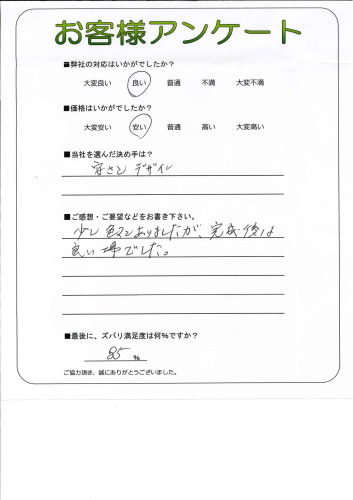 お客様アンケート
■弊社の対応はいかがでしたか？
大変良い 良い 普通 不満 大変不満
■価格はいかがでしたか？
大変安い 安い 普通 高い 大変高い
■当社を選んだ決め手は？
安さと デザイン
■ご感想・ご要望などをお書き下さい。
少し色々とありましたが、完成後は
良い場でした。
■最後に、ズバリ満足度は何％ですか？
85 ％
ご協力頂き、誠にありがとうございました。